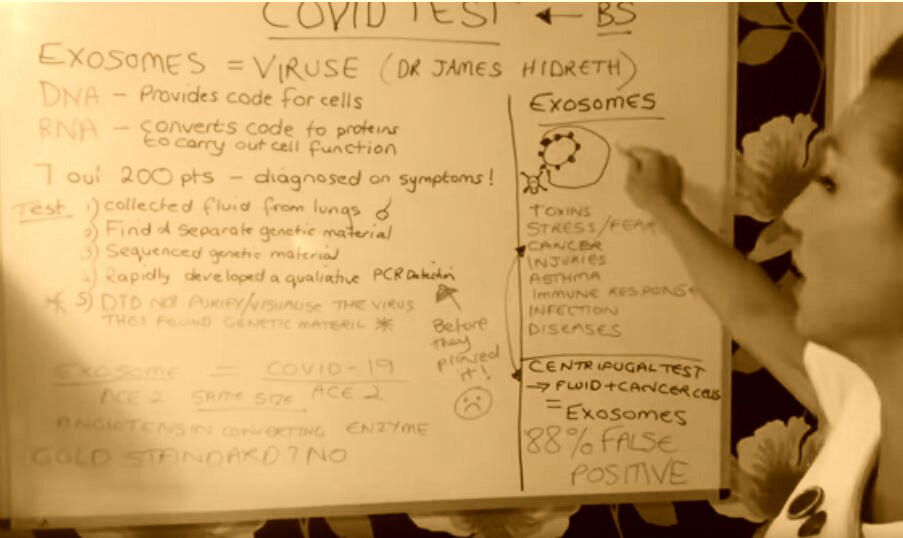 COVID TEST ← BS
EXOSOMES = VIRUSE (DR JAMES HIDRETH)
DNA - Provides code for cells
RNA - converts code to proteins
to carry out cell function
7 out 200 pts - diagnosed on symptoms!
Test 1) collected fluid from lungs
2) Find & Separate genetic material
3) Sequenced genetic material
4) Rapidly developed a qualiative PCR Detection
* 5) DID NOT PURIFY/VISUALISE THE VIRUS
THEY FOUND GENETIC MATERIL *
Before
they
proved
it!
EXOSOME = COVID-19
ACE 2 SAME SIZE ACE 2
ANGIOTENSIN CONVERTING ENZYME
GOLD STANDARD? NO
EXOSOMES
TOXINS
STRESS/FEAR
CANCER
INJURIES
ASTHMA
IMMUNE RESPONSE
INFECTION
DISEASES
CENTRIFUGAL TEST
→ FLUID + CANCER CELLS
= EXOSOMES
88% FALSE
POSITIVE